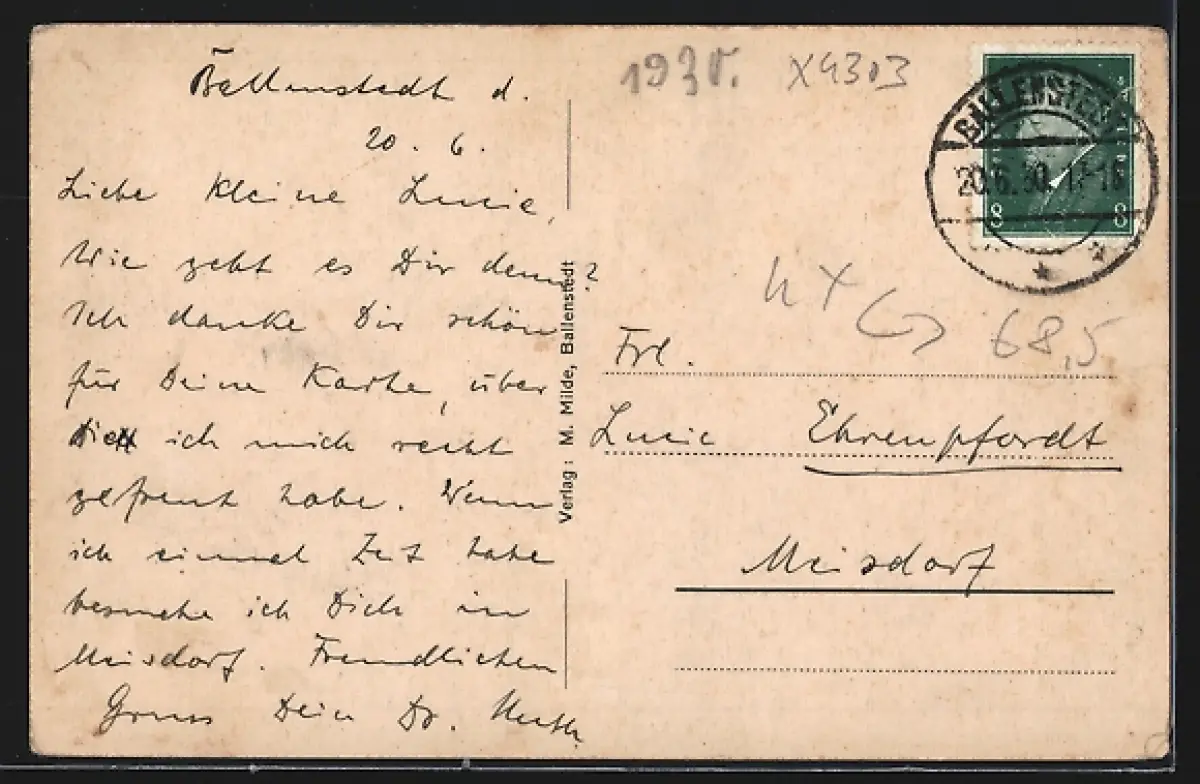 Ballenstedt d.
20. 6.
Liebe kleine Lucie,
Wie geht es Dir denn?
Ich danke Dir schön
für Deine Karte, über
die ich mich recht
gefreut habe. Wenn
ich einmal Zeit habe
besuche ich Dich in
Meisdorf. Freundlichen
Gruss Dein Dr.
Verlag: M. Milde, Ballenstedt
1930. X4303
BALLENSTEDT
20.6.30.17-18
8 8
68,5
Frl.
Lucie Ehrenpfordt
Meisdorf